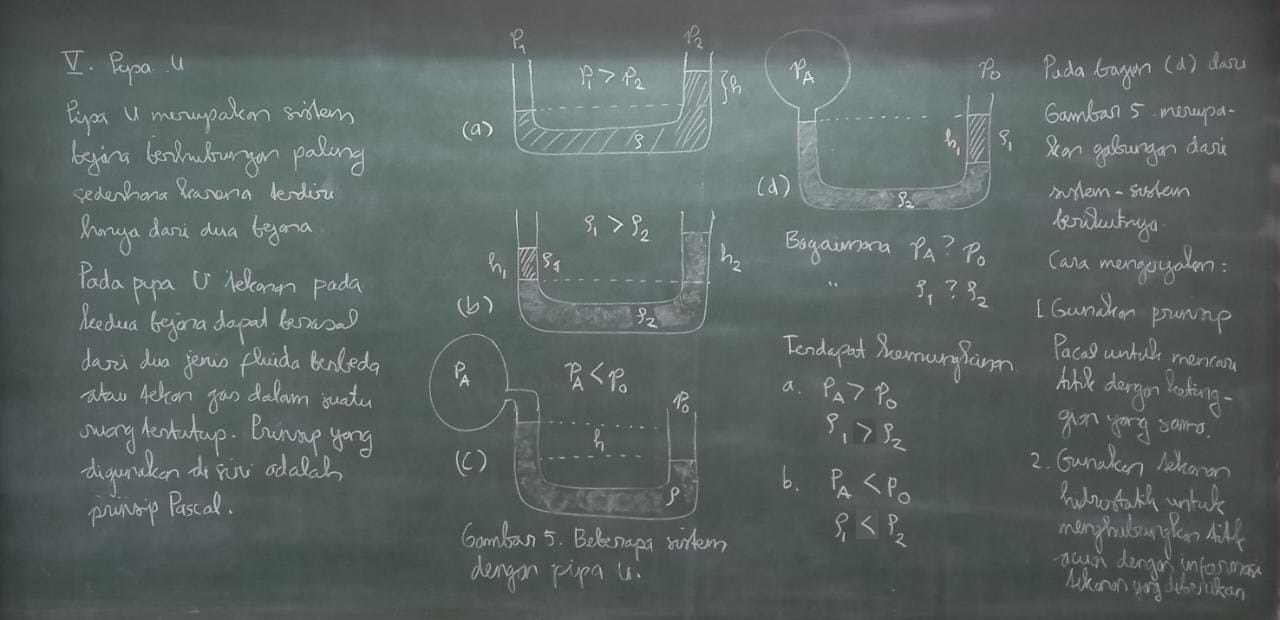 V. Pipa U
Pipa U merupakan sistem
bejana berhubungan paling
sederhana karena terdiri
hanya dari dua bejana.
Pada pipa U tekanan pada
kedua bejana dapat berasal
dari dua jenis fluida berbeda
atau tekan gas dalam suatu
ruang tertutup. Prinsip yang
digunakan di sini adalah
prinsip Pascal.
P₁ P₂
P₁ > P₂
h
(a)
ρ
ρ₁ > ρ₂
h₁ ρ₁ h₂
(b)
ρ₂
P_A
P_A < P₀
P₀
h
(c)
ρ
Gambar 5. Beberapa sistem
dengan pipa U.
P_A P₀
h₁ ρ₁
(d)
ρ₂
Bagaimana P_A ? P₀
" ρ₁ ? ρ₂
Terdapat kemungkinan
a. P_A > P₀
ρ₁ > ρ₂
b. P_A < P₀
ρ₁ < ρ₂
Pada bagian (d) dari
Gambar 5 merupa-
kan gabungan dari
sistem-sistem
berikutnya.
Cara mengerjakan:
1. Gunakan prinsip
Pacal untuk mencari
titik dengan keting-
gian yang sama.
2. Gunakan tekanan
hidrostatik untuk
menghubungkan titik
acuan dengan informasi
tekanan yang diberikan